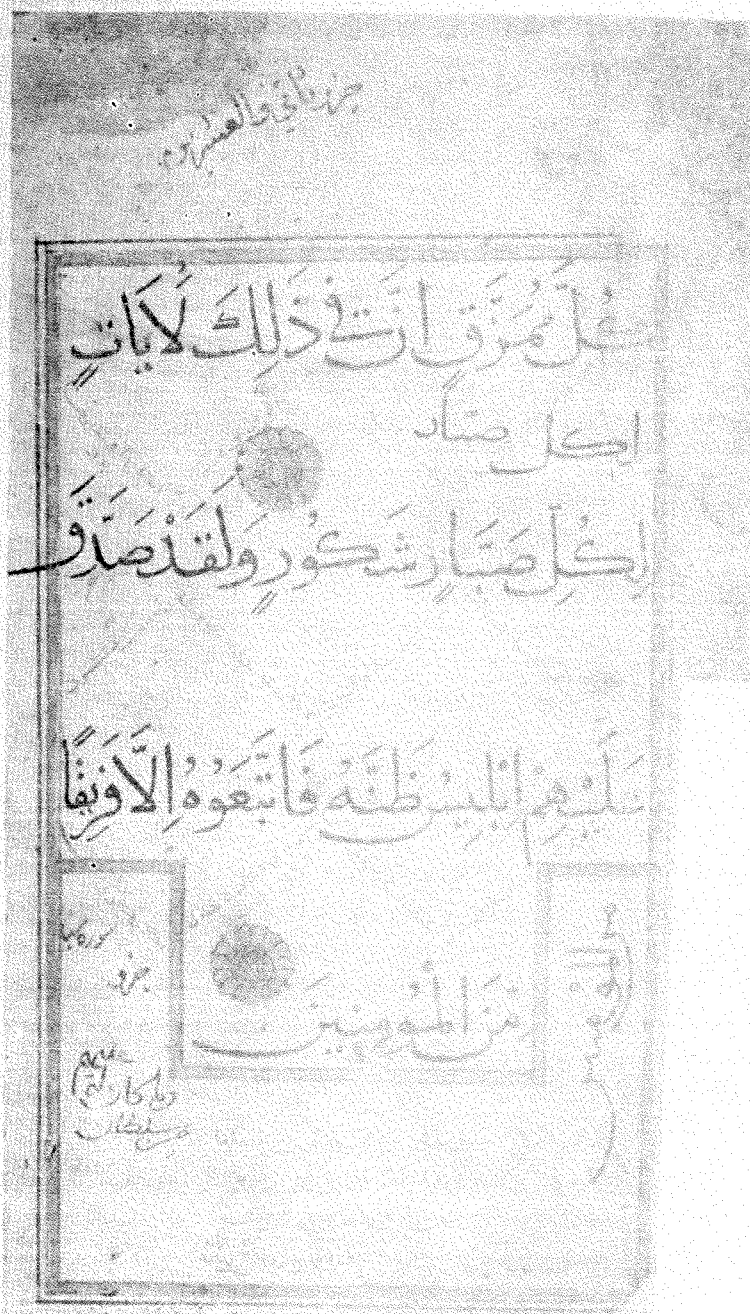 جزو ثاني والعشرون
كُلَّ مُمَزَّقٍ اِنَّ فِي ذَلِكَ لَأَيَاتٍ
لكل صبار
لِكُلِّ صَبَّارٍ شَكُورٍ وَلَقَدْ صَدَّقَ
عَلَيْهِمْ اِبْلِيسُ ظَنَّهُ فَاتَّبَعُوهُ اِلَّا فَرِيقًا
مِنَ الْمُؤْمِنِينَ
سوره سبا
جزو